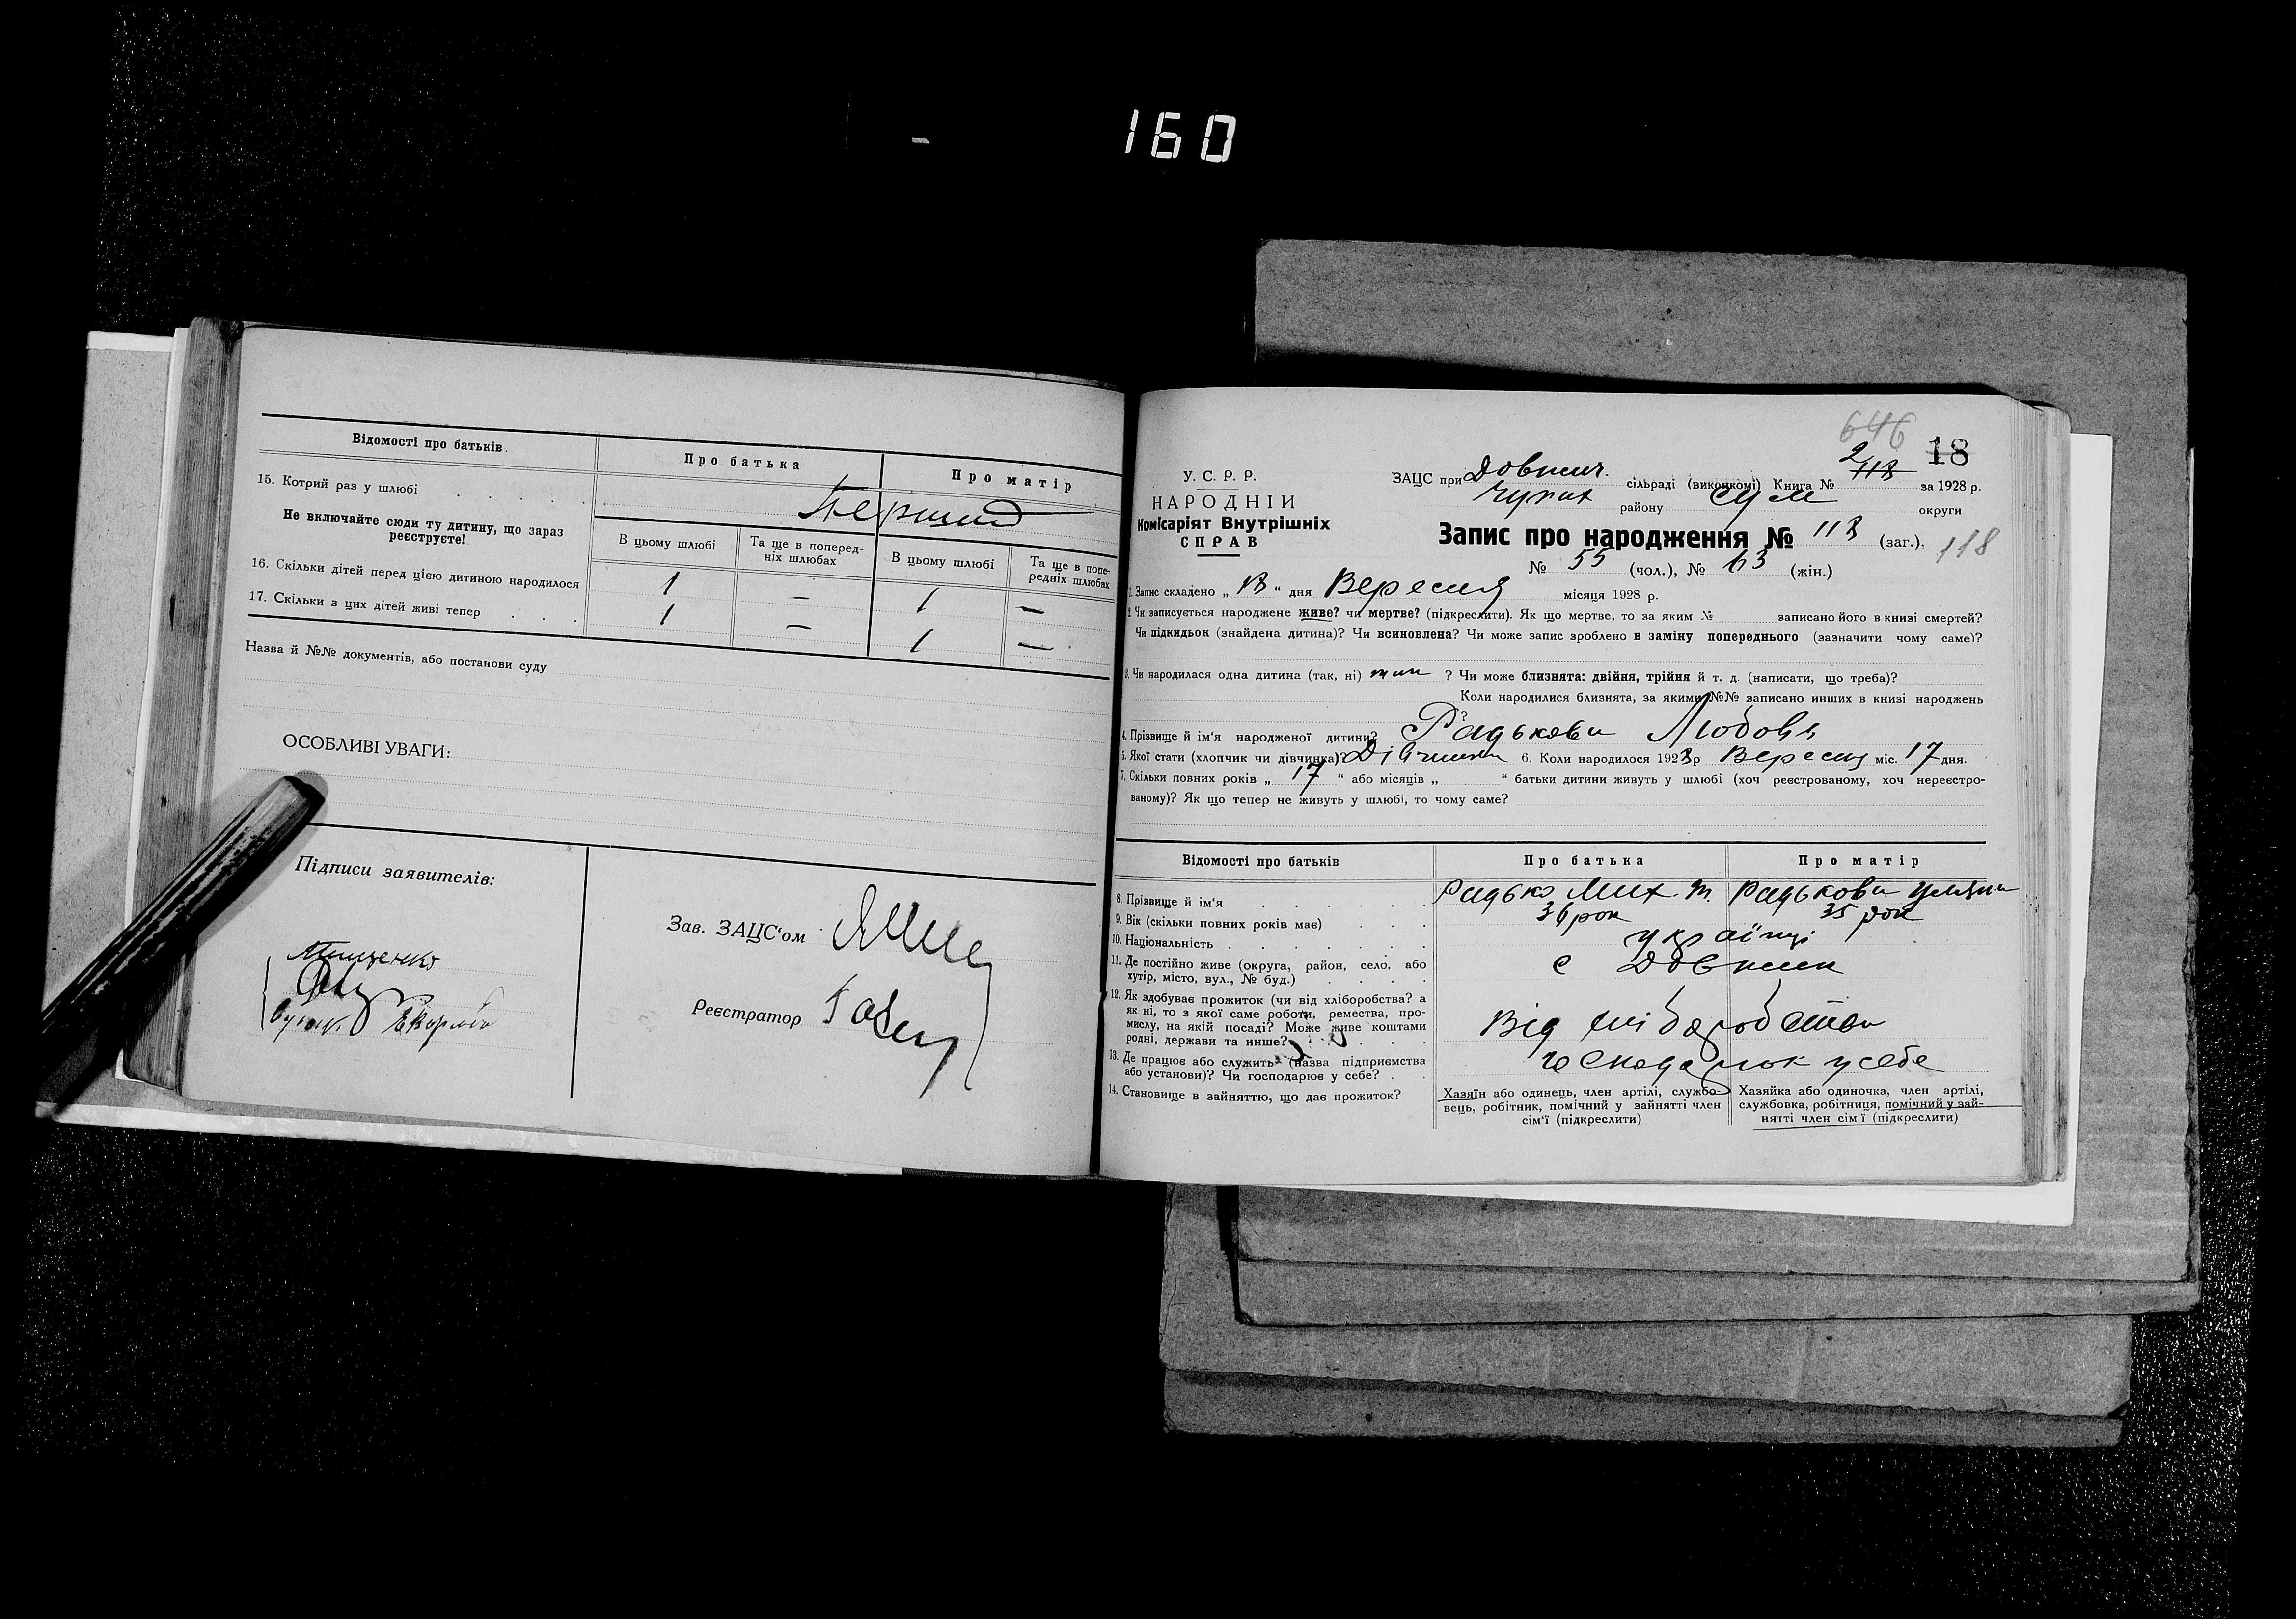 160
Відомості про батьків
Про батька
Про матір
15. Котрий раз у шлюбі
Перший
Не включайте сюди ту дитину, що зараз
реєструєте!
В цьому шлюбі
Та ще в поперед-
ніх шлюбах
В цьому шлюбі
Та ще в попе-
редніх шлюбах
16. Скільки дітей перед цією дитиною народилося
1 — 1 —
17. Скільки з цих дітей живі тепер
1 — 1 —
Назва й №№ документів, або постанови суду
ОСОБЛИВІ УВАГИ:
Підписи заявителів:
Зав. ЗАЦС'ом
Реєстратор
646
18
У. С. Р. Р.
НАРОДНІЙ
Комісаріят Внутрішніх
СПРАВ
ЗАЦС при Довжич. сільраді (виконкомі) Книга № 2 118 за 1928 р.
району Сум округи
Запис про народження № 118 (заг.), 118
№ 55 (чол.), № 63 (жін.)
1. Запис складено „ 18 “ дня Вересня місяця 1928 р.
2. Чи записується народжене живе? чи мертве? (підкреслити). Як що мертве, то за яким № записано його в книзі смертей?
Чи підкидьок (знайдена дитина)? Чи всиновлена? Чи може запис зроблено в заміну попереднього (зазначити чому саме)?
3. Чи народилася одна дитина (так, ні) так ? Чи може близнята: двійня, трійня й т. д. (написати, що треба)?
Коли народилися близнята, за якими №№ записано инших в книзі народжень
?
4. Прізвище й ім'я народженої дитини? Радькова Любовь
5. Якої стати (хлопчик чи дівчинка)? Дівчинка 6. Коли народилося 1928 р Вересня міс. 17 дня.
7. Скільки повних років „ 17 “ або місяців „ “ батьки дитини живуть у шлюбі (хоч реєстрованому, хоч нереєстро-
ваному)? Як що тепер не живуть у шлюбі, то чому саме?
Відомості про батьків
Про батька
Про матір
8. Прізвище й ім'я
Радько Мих. Т. Радькова Уляна
9. Вік (скільки повних років має)
36 рок 35 рок
10. Національність
українці
11. Де постійно живе (округа, район, село, або
хутір, місто, вул., № буд.)
с Довжик
12. Як здобуває прожиток (чи від хліборобства? а
як ні, то з якої саме роботи, ремества, про-
мислу, на якій посаді? Може живе коштами
родні, держави та инше?
Від хліборобства
13. Де працює або служить (назва підприємства
або установи)? Чи господарює у себе?
у себе
14. Становище в зайняттю, що дає прожиток?
Хазяїн або одинець, член артілі, службо-
вець, робітник, помічний у зайнятті член
сім'ї (підкреслити)
Хазяйка або одиночка, член артілі,
службовка, робітниця, помічний у зай-
нятті член сім'ї (підкреслити)